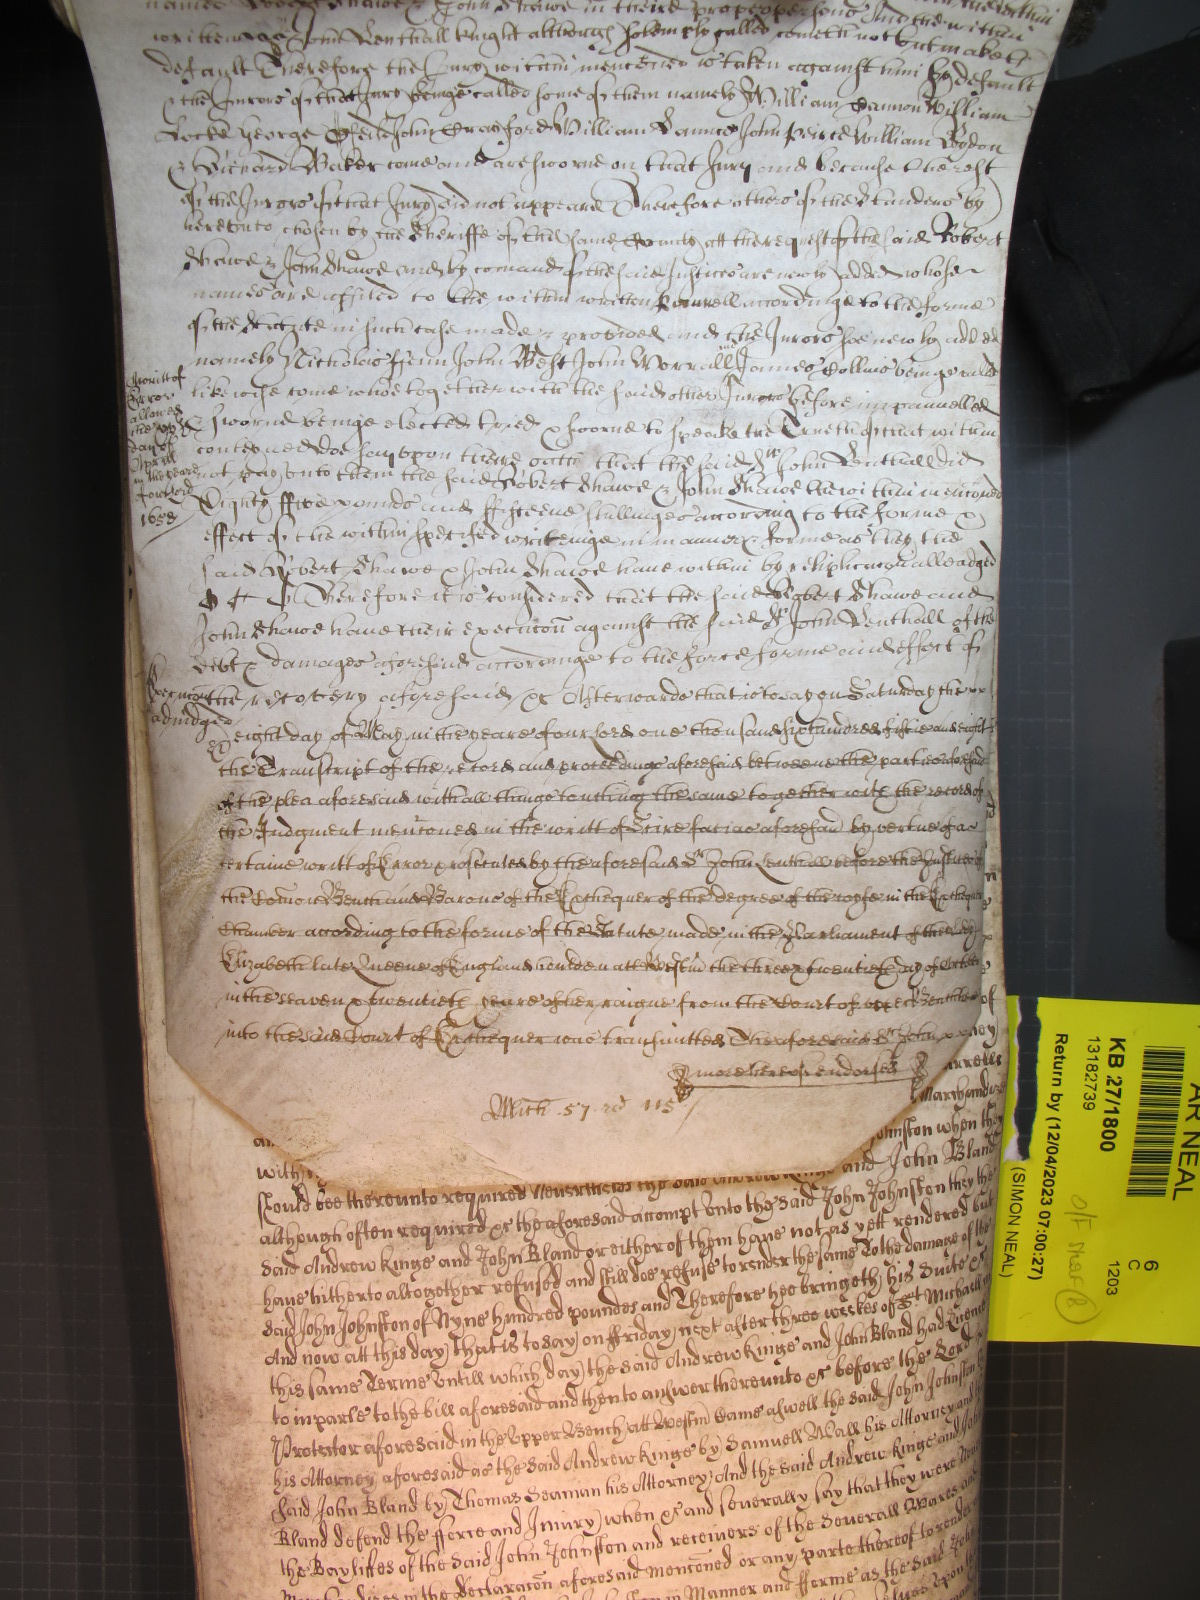 names Robert Shawe & John Shawe in theire proper persons And the within
written John Lenthall knight although solemnly called cometh not but maketh
default Therefore the Jury within mencioned is taken against him by default
& the Jurors of that Jury beinge called some of them namely William Cannon William
Locke George John Crayford William Vannce John Peirce William Bogdon
& Richard Baker come and are sworne on that Jury and because the rest
of the Jurors of that Jury did not appeare Therefore others of the standers by
hereunto chosen by the Sheriffe of the same County att the request of the said Robert
Shawe & John Shawe and by comand of the said Justices are newly added whose
names are affiled to the within written Pannell accordinge to the forme
of the Statute in such case made & provided and the Jurors soe newly added
namely Nicholas ffenn John West John Worrall and James Collins beinge called
likewise come whoe together with the said other Jurors before impannelled
& sworne beinge elected tried & sworne to speake the Trueth of that within
conteyned doe say upon theire oath that the said Sr John Lenthall did
not pay unto them the said Robert Shawe & John Shawe the within mencioned
Eighty ffive pounds and ffifteene shillinges accordinge to the forme &
effect of the within specified writeinge in manner & forme as they the
said Robert Shawe & John Shawe have within by replicacon alleadged
Therefore it is considered that the said Robert Shawe and
John Shawe have their execucon against the said Sr John Lenthall of the
debt & damages aforesaid accordinge to the force forme and effect of
the recovery aforesaid &c Afterwards that is to say on Saturday the xx
eight day of May in the yeare of our Lord one thousand six hundred fiftie and eight
the Transcript of the record and proceedings aforesaid betweene the parties aforesaid
of the plea aforesaid with all things touching the same together with the record of
the Judgment mencioned in the writt of Scire facias aforesaid by vertue of a
certaine writt of Error prosecuted by the aforesaid Sr John Lenthall before the Justices of
the Comon Bench and Barons of the Exchequer of the degree of the coyfe in the Exchequer
Chamber according to the forme of the Statute made in the Parliament of the Lady
Elizabeth late Queene of England houlden att Westm the three & twentieth day of
in the seaven & twentieth yeare of her raigne from the Court of Bench
into the said Court of Exchequer was transmitted The aforesaid Sr John
more hereof endorsed
Mich 57 rd 115
A writt of
Error
allowed
the
day of
Aprill
in the yeare
of our Lord
1658
Execucon
adiudged
with
should bee thereunto required Neverthelesse the said Andrew Kinge and John Bland
although often required &c the aforesaid accompt unto the said John Johnston they the
said Andrew Kinge and John Bland or either of them have not as yett rendered but
have hitherto altogether refused and still doe refuse to render the same To the damage of the
said John Johnston of Nyne hundred poundes and Therefore hee bringeth his Suite &c
And now att this day that is to say on ffriday next after three weekes of St Michaell in
this same Terme Untill which day the said Andrew Kinge and John Bland had licence
to imparle to the bill aforesaid and then to answer thereunto &c before the Lord
Protector aforesaid in the Upper Bench att Westm Came aswell the said John Johnston by
his Attorney aforesaid as the said Andrew Kinge by Samuell Wall his Attorney and the
said John Bland by Thomas Seaman his Attorney And the said Andrew Kinge and John
Bland defend the fforce and Injury when &c and severally say that they were
the Bayliffes of the said John Johnston and receivers of the Severall Wares and
in the Declaracon aforesaid mencioned or any parte thereof to render
Manner and fforme as the said John
Marchandize
Johnston when the
AR NEAL
KB 27/1800
13182739
Return by (12/04/2023 07:00:27)
(SIMON NEAL)
6
C
1203